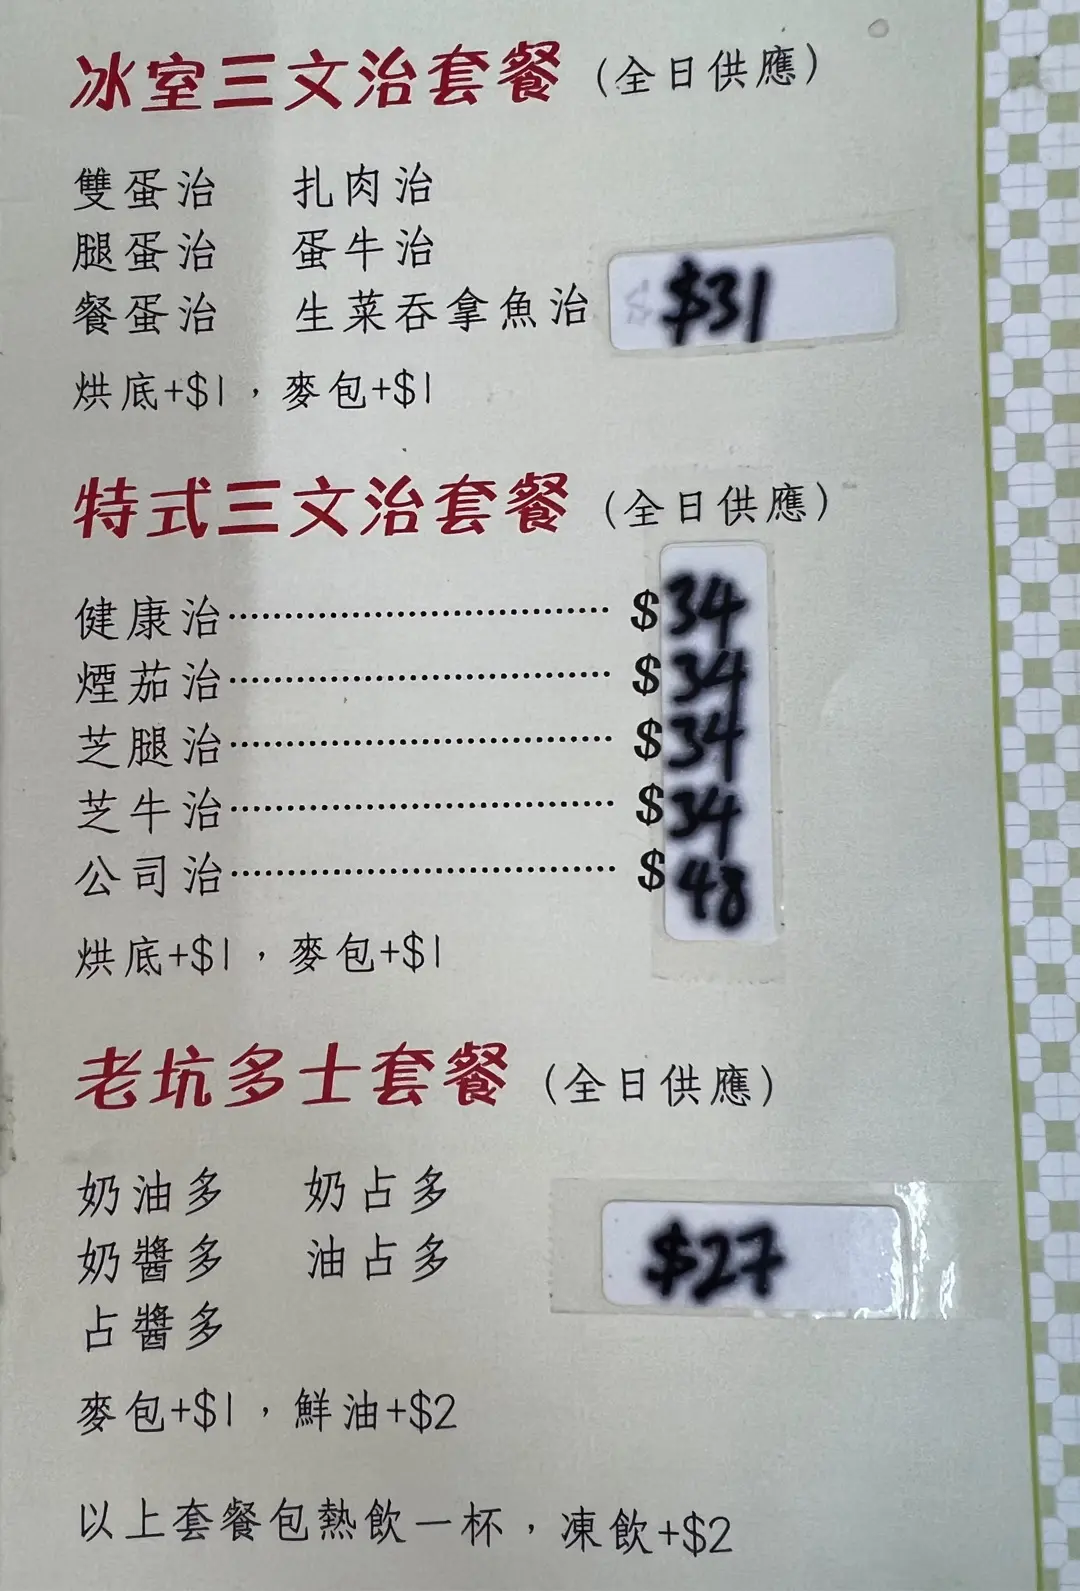 冰室三文治套餐（全日供應）
雙蛋治　扎肉治
腿蛋治　蛋牛治
餐蛋治　生菜吞拿魚治　$31
烘底+$1，麥包+$1
特式三文治套餐（全日供應）
健康治 $34
煙茄治 $34
芝腿治 $34
芝牛治 $34
公司治 $48
烘底+$1，麥包+$1
老坑多士套餐（全日供應）
奶油多　奶占多
奶醬多　油占多　$27
占醬多
麥包+$1，鮮油+$2
以上套餐包熱飲一杯，凍飲+$2